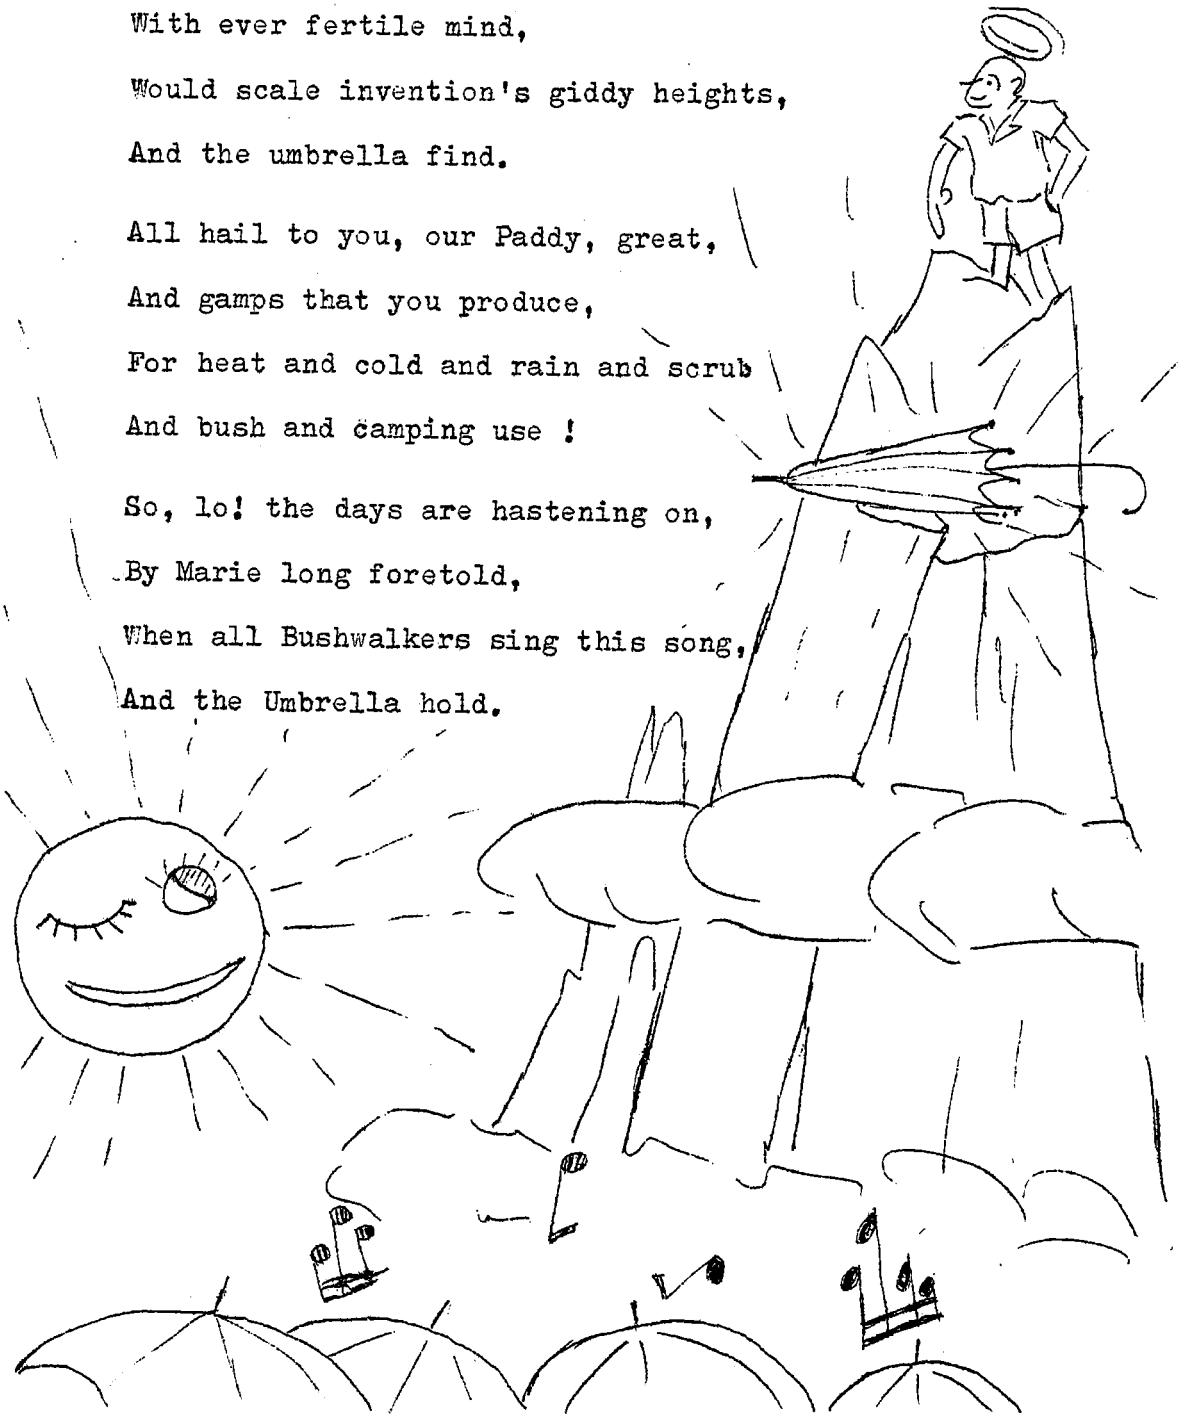 With ever fertile mind,
Would scale invention's giddy heights,
And the umbrella find.
All hail to you, our Paddy, great,
And gamps that you produce,
For heat and cold and rain and scrub
And bush and camping use !
So, lo! the days are hastening on,
By Marie long foretold,
When all Bushwalkers sing this song,
And the Umbrella hold.